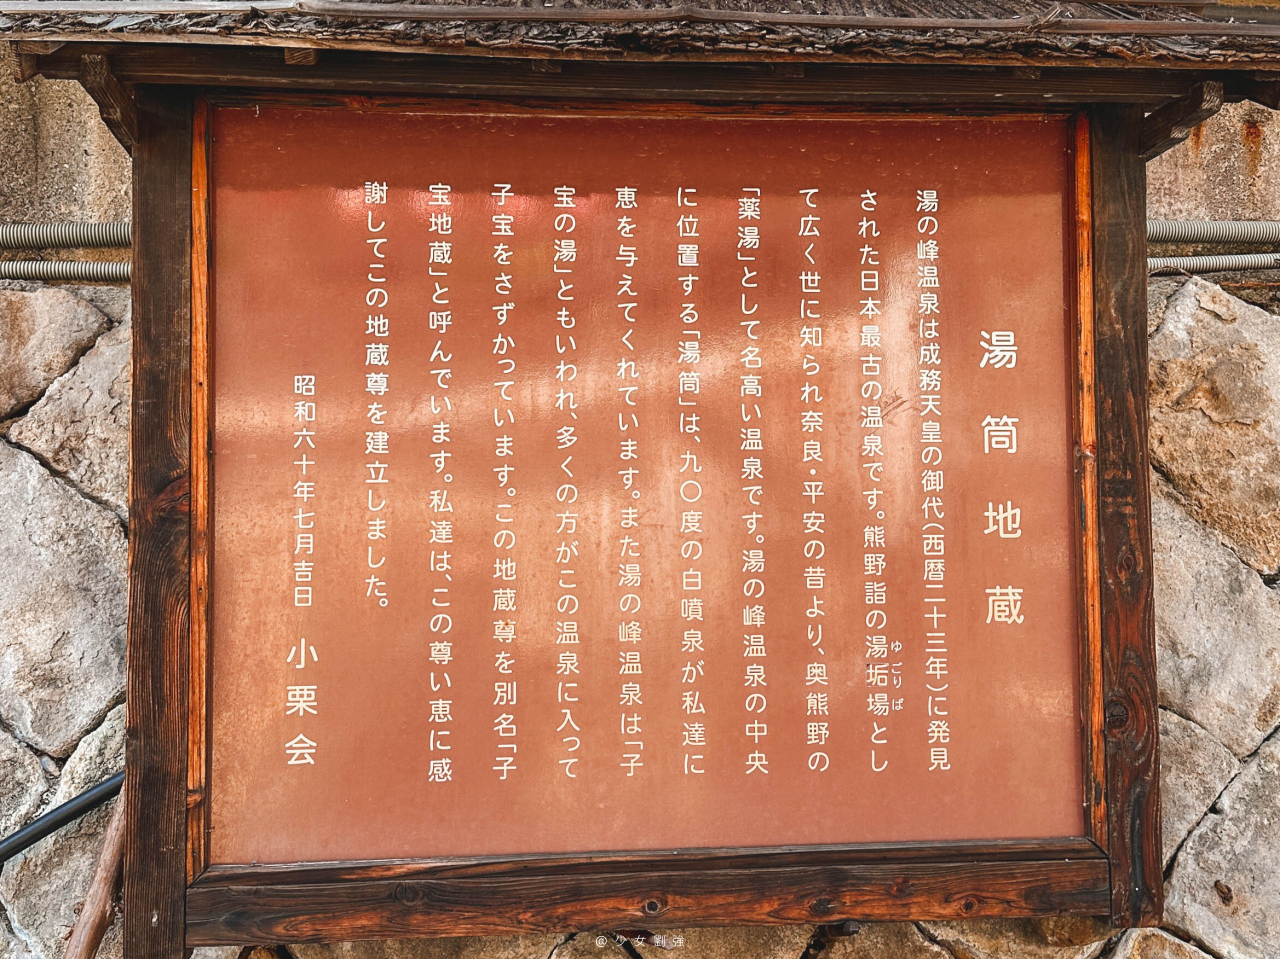 湯筒地蔵
湯の峰温泉は成務天皇の御代(西暦二十三年)に発見
された日本最古の温泉です。熊野詣の湯垢場とし
ゆごりば
て広く世に知られ奈良・平安の昔より、奥熊野の
「薬湯」として名高い温泉です。湯の峰温泉の中央
に位置する「湯筒」は、九〇度の白噴泉が私達に
恵を与えてくれています。また湯の峰温泉は「子
宝の湯」ともいわれ、多くの方がこの温泉に入って
子宝をさずかっています。この地蔵尊を別名「子
宝地蔵」と呼んでいます。私達は、この尊い恵に感
謝してこの地蔵尊を建立しました。
昭和六十年七月吉日 小栗会
@少女劉強